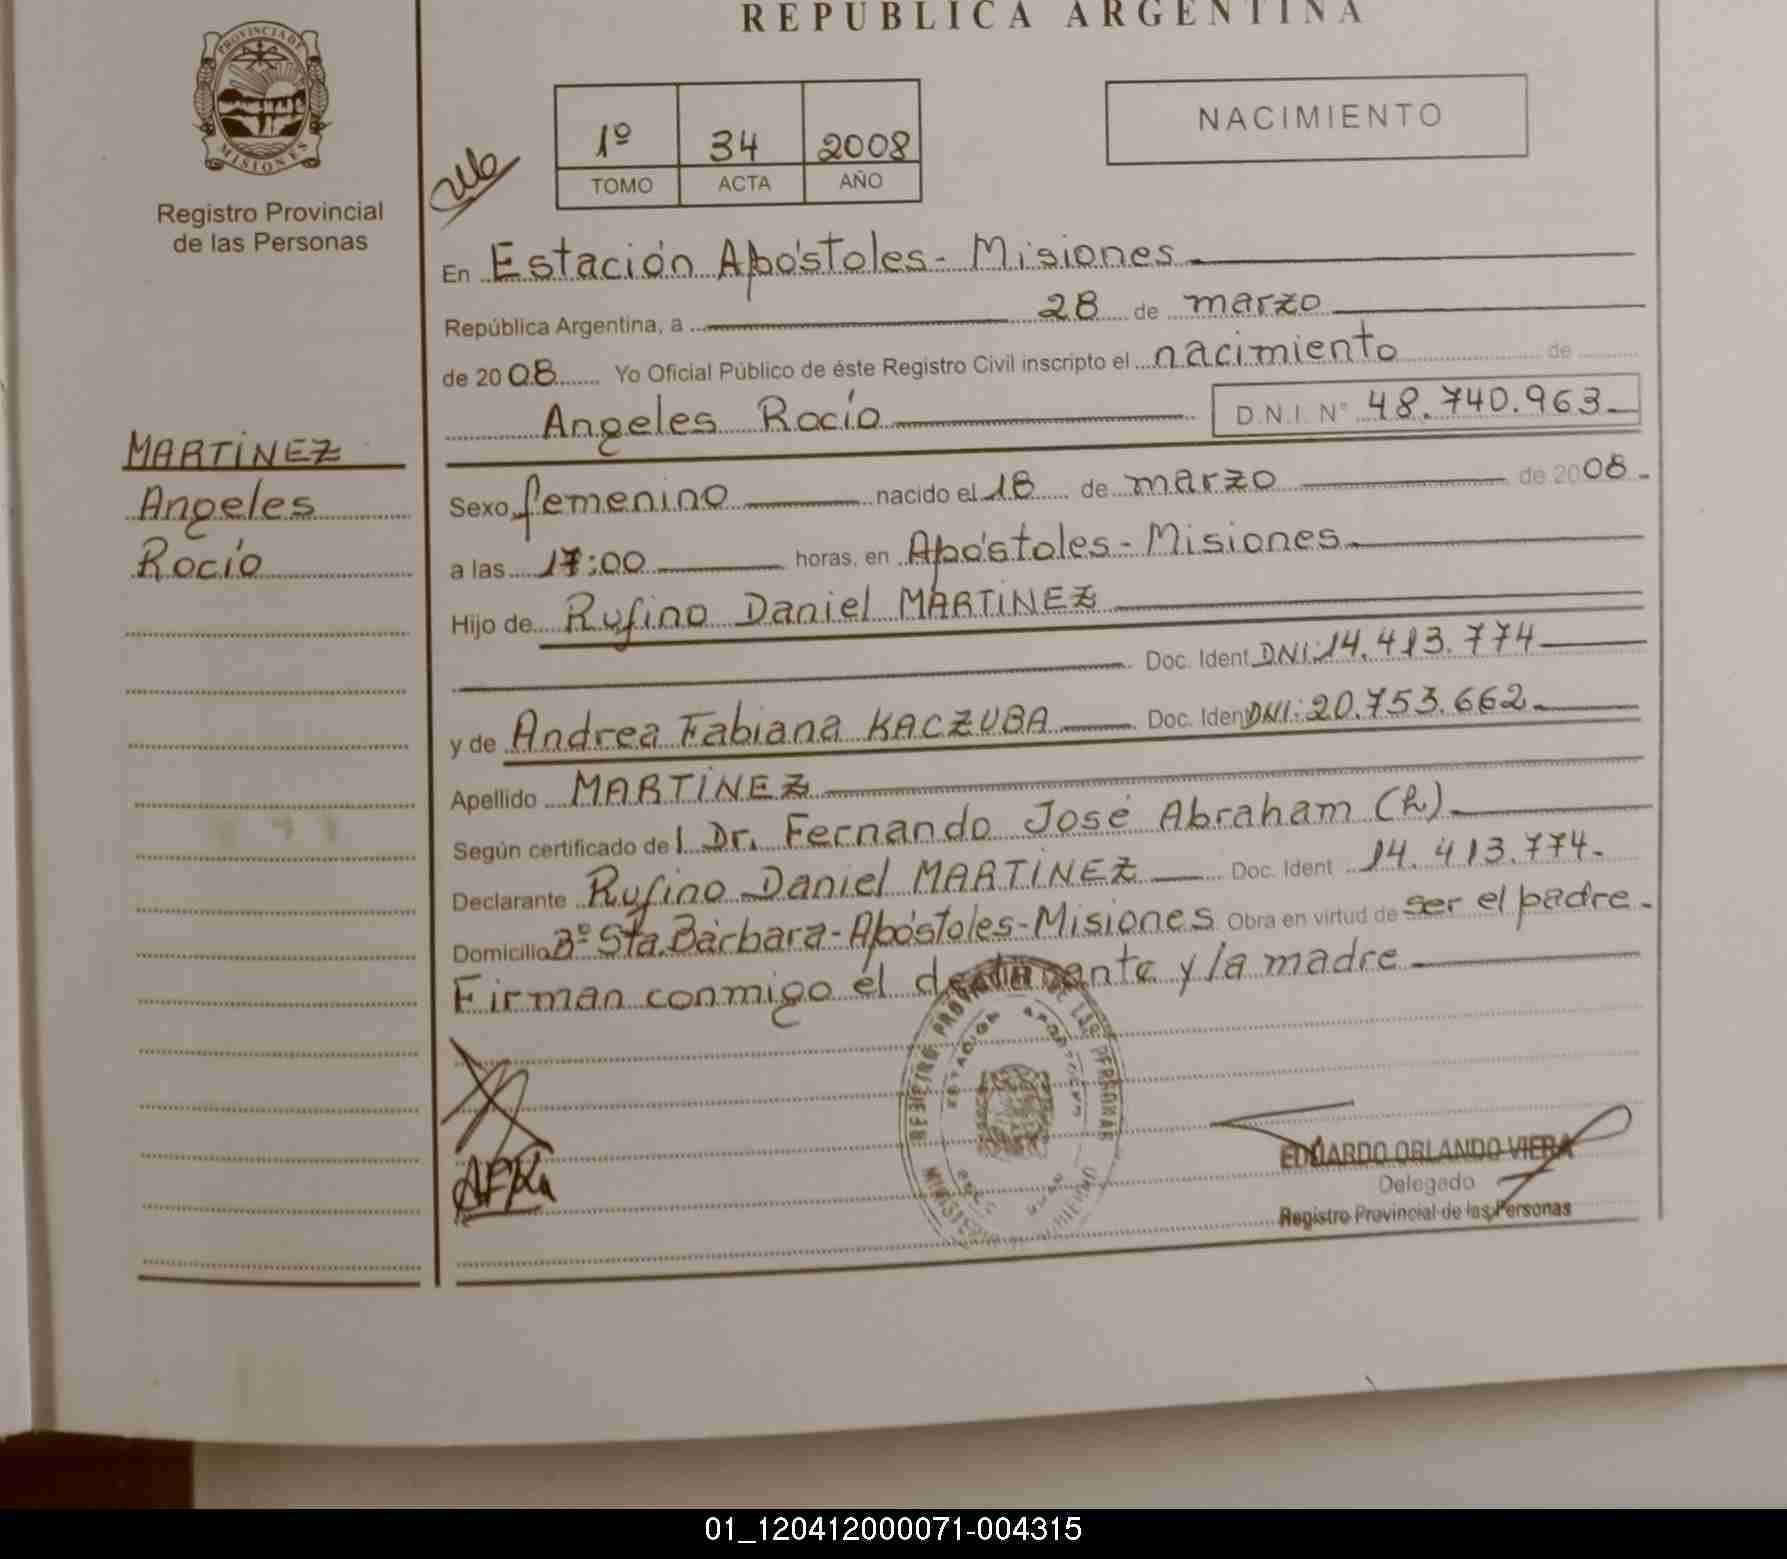 REPUBLICA ARGENTINA
PROVINCIA DE
MISIONES
Registro Provincial
de las Personas
1º 34 2008
TOMO ACTA AÑO
NACIMIENTO
En Estación Apóstoles - Misiones
República Argentina, a 28 de marzo
de 2008 Yo Oficial Público de éste Registro Civil inscripto el nacimiento de
Angeles Rocío D.N.I. Nº 48.740.963
MARTINEZ
Angeles
Rocío
Sexo femenino nacido el 18 de marzo de 2008.
a las 17:00 horas, en Apóstoles - Misiones
Hijo de Rufino Daniel MARTINEZ
Doc. Ident DNI: 14.413.774
y de Andrea Fabiana KACZUBA Doc. Iden DNI: 20.753.662
Apellido MARTINEZ
Según certificado del Dr. Fernando José Abraham (h)
Declarante Rufino Daniel MARTINEZ Doc. Ident 14.413.774.
Domicilio Bº Sta. Bárbara - Apóstoles - Misiones Obra en virtud de ser el padre.
Firman conmigo el declarante y la madre
REGISTRO PROVINCIAL DE LAS PERSONAS
ESTACION APOSTOLES
AFK
EDUARDO ORLANDO VIERA
Delegado
Registro Provincial de las Personas
01_120412000071-004315